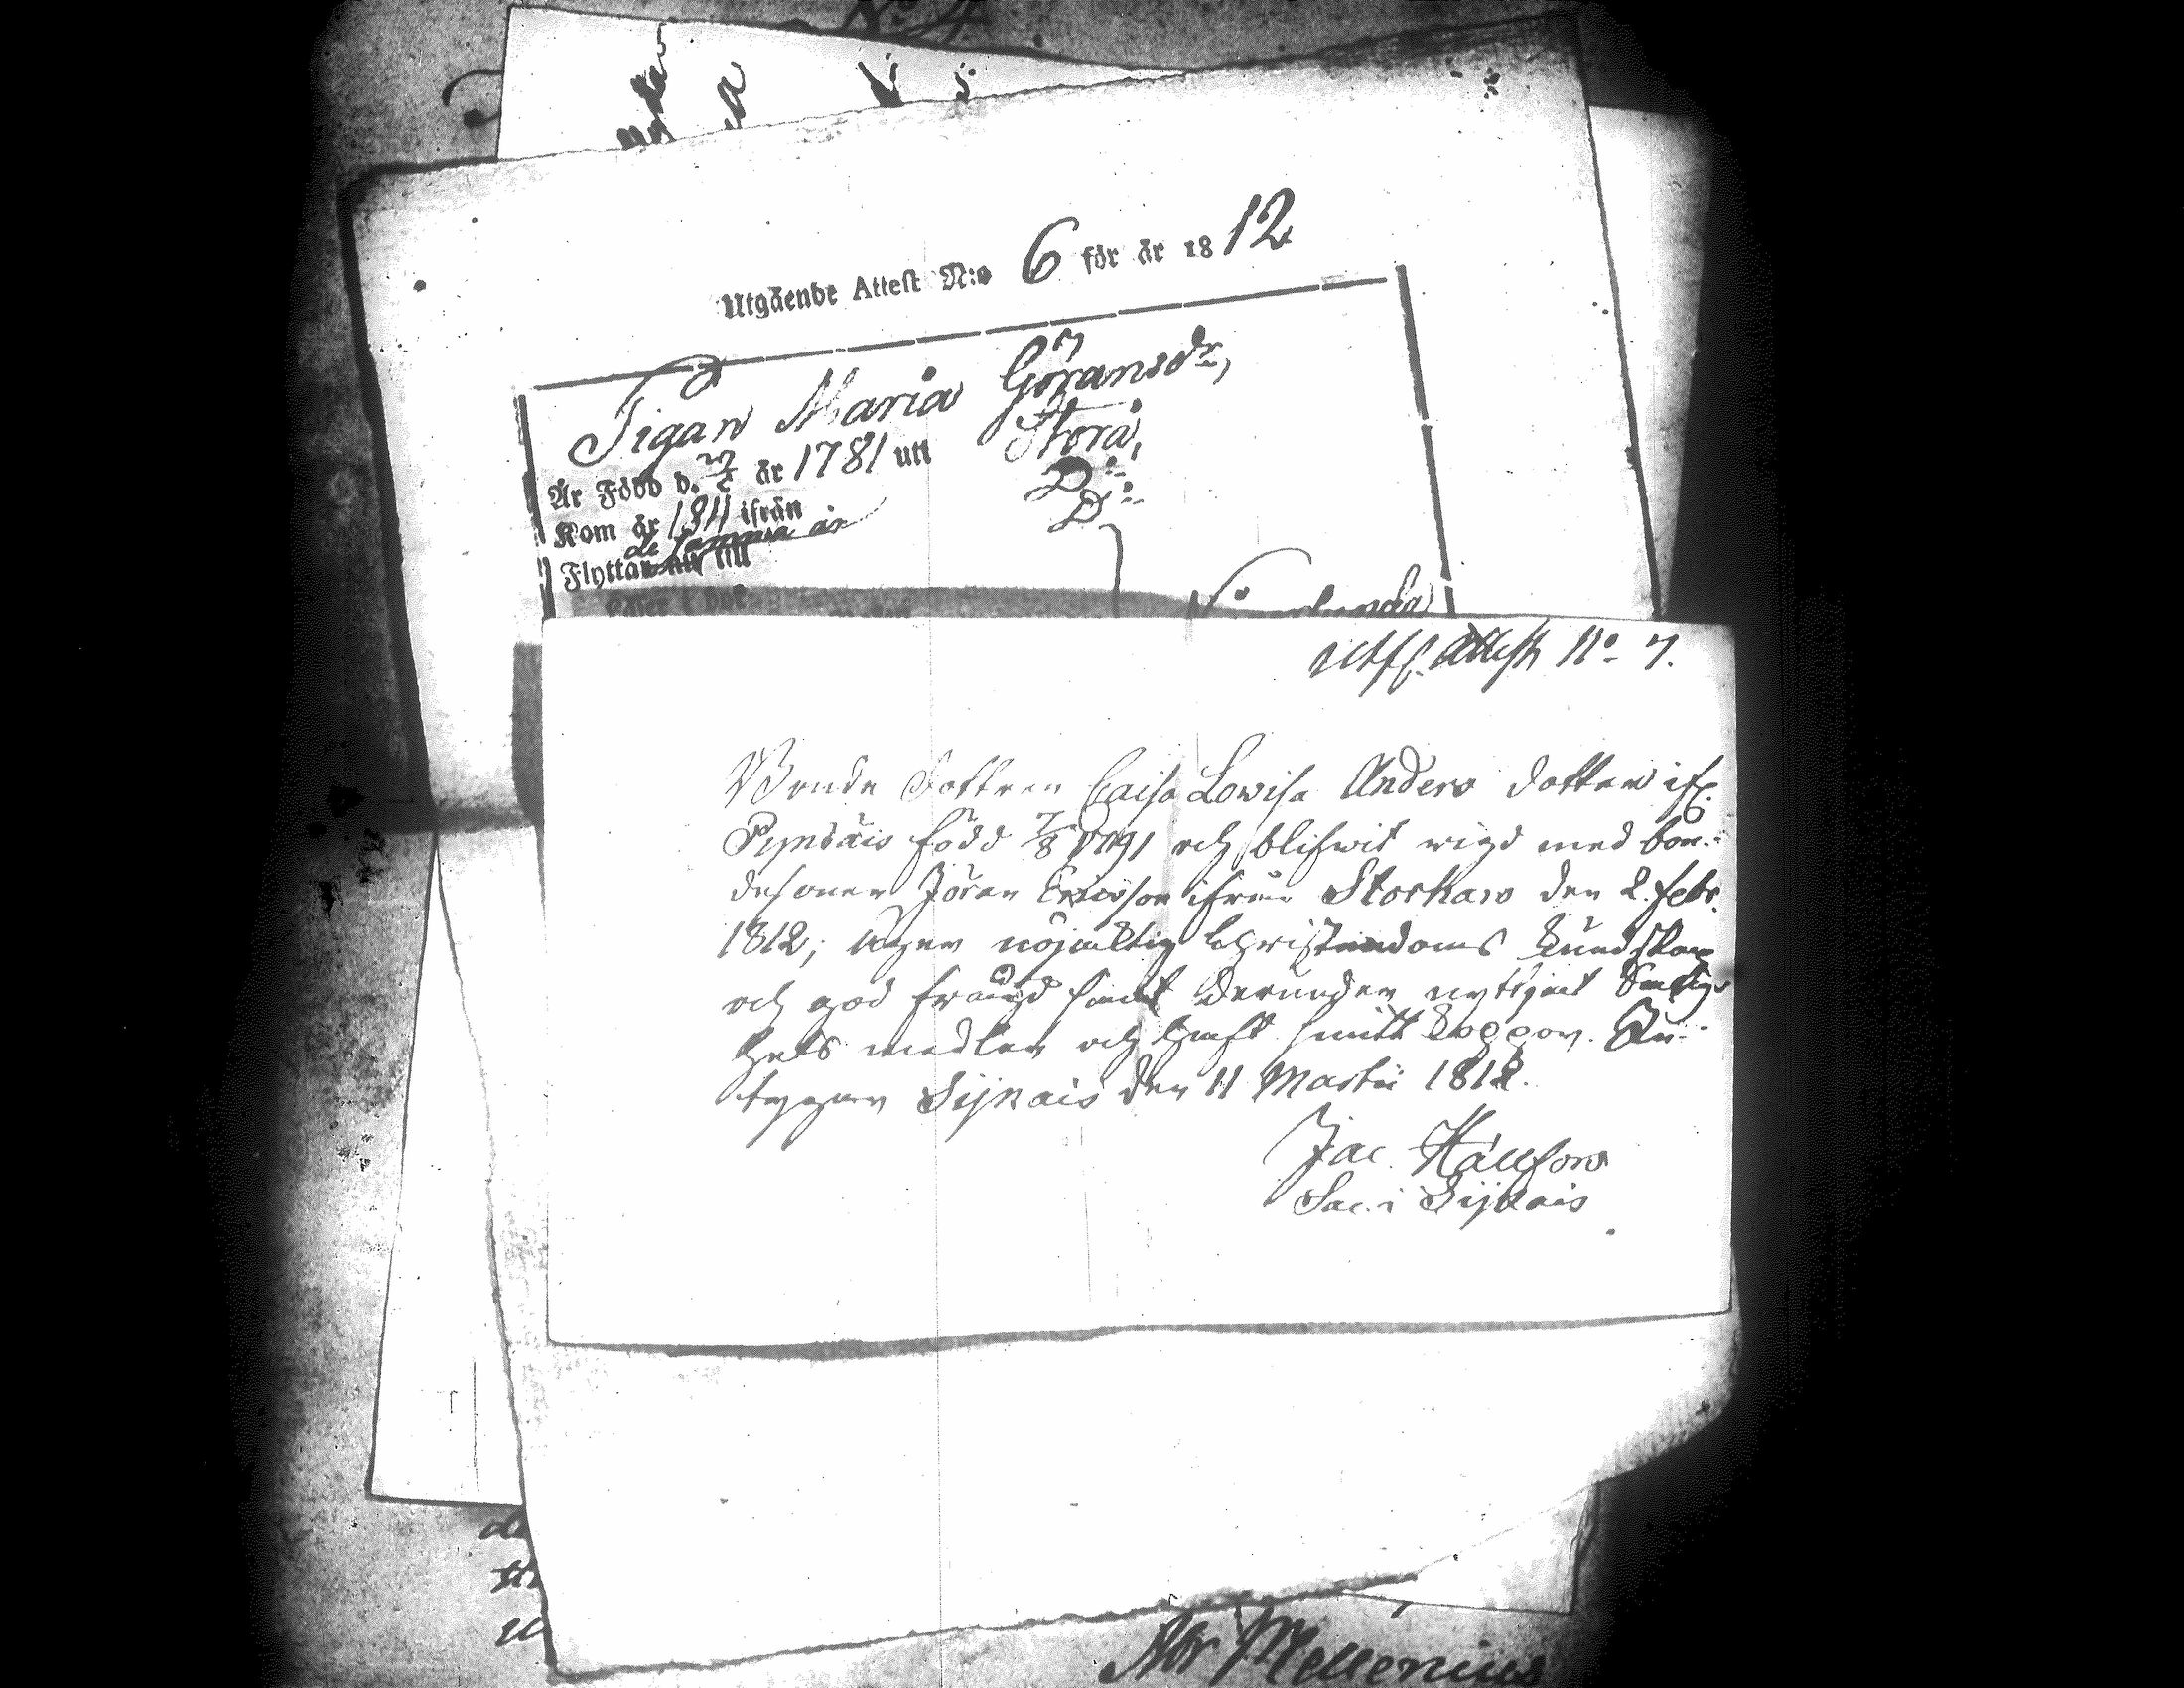 No 4
Utgående Attest N:o 6 för år 1812
Pigan Maria Göransdr,
Är Född d. år 1781 uti Storå,
Kom år 1811 ifrån Do
de samma år
Flyttar nu till Do
inflt. Attest No 7.
Bonde Dottren Caisa Lovisa Anders dotter ifr.
Pynöäis född 7/8 1791 och blifwit vigd med bon-
desonen Jöran Ericsson ifrån Storkaro den 2. febr.
1812; äger nöjaktig Christendoms Kundskap
och god frägd samt derunder nyttjat Salig-
hets medlen och haft smitt koppor. Be-
tygar Sijkais den 11 Martii 1812.
Jac. Hällfors
Sac. i Sijkais
Abr Mellenius